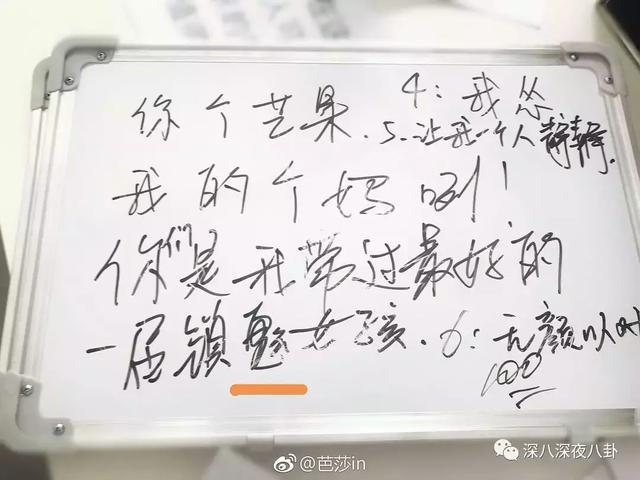 你个芒果. 4：我怂
5、让我一个人静静.
我的个妈咧！
你们是我带过最好的
一届镇魂女孩. 6：无颜以对
100
@芭莎in
深八深夜八卦